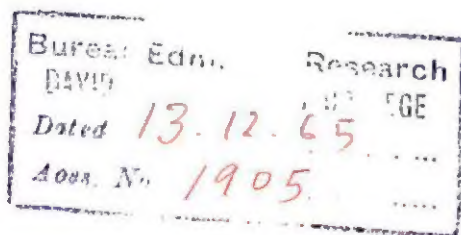 Bureau Edni. Research
DAVID
Dated 13.12.65
Accs. No 1905